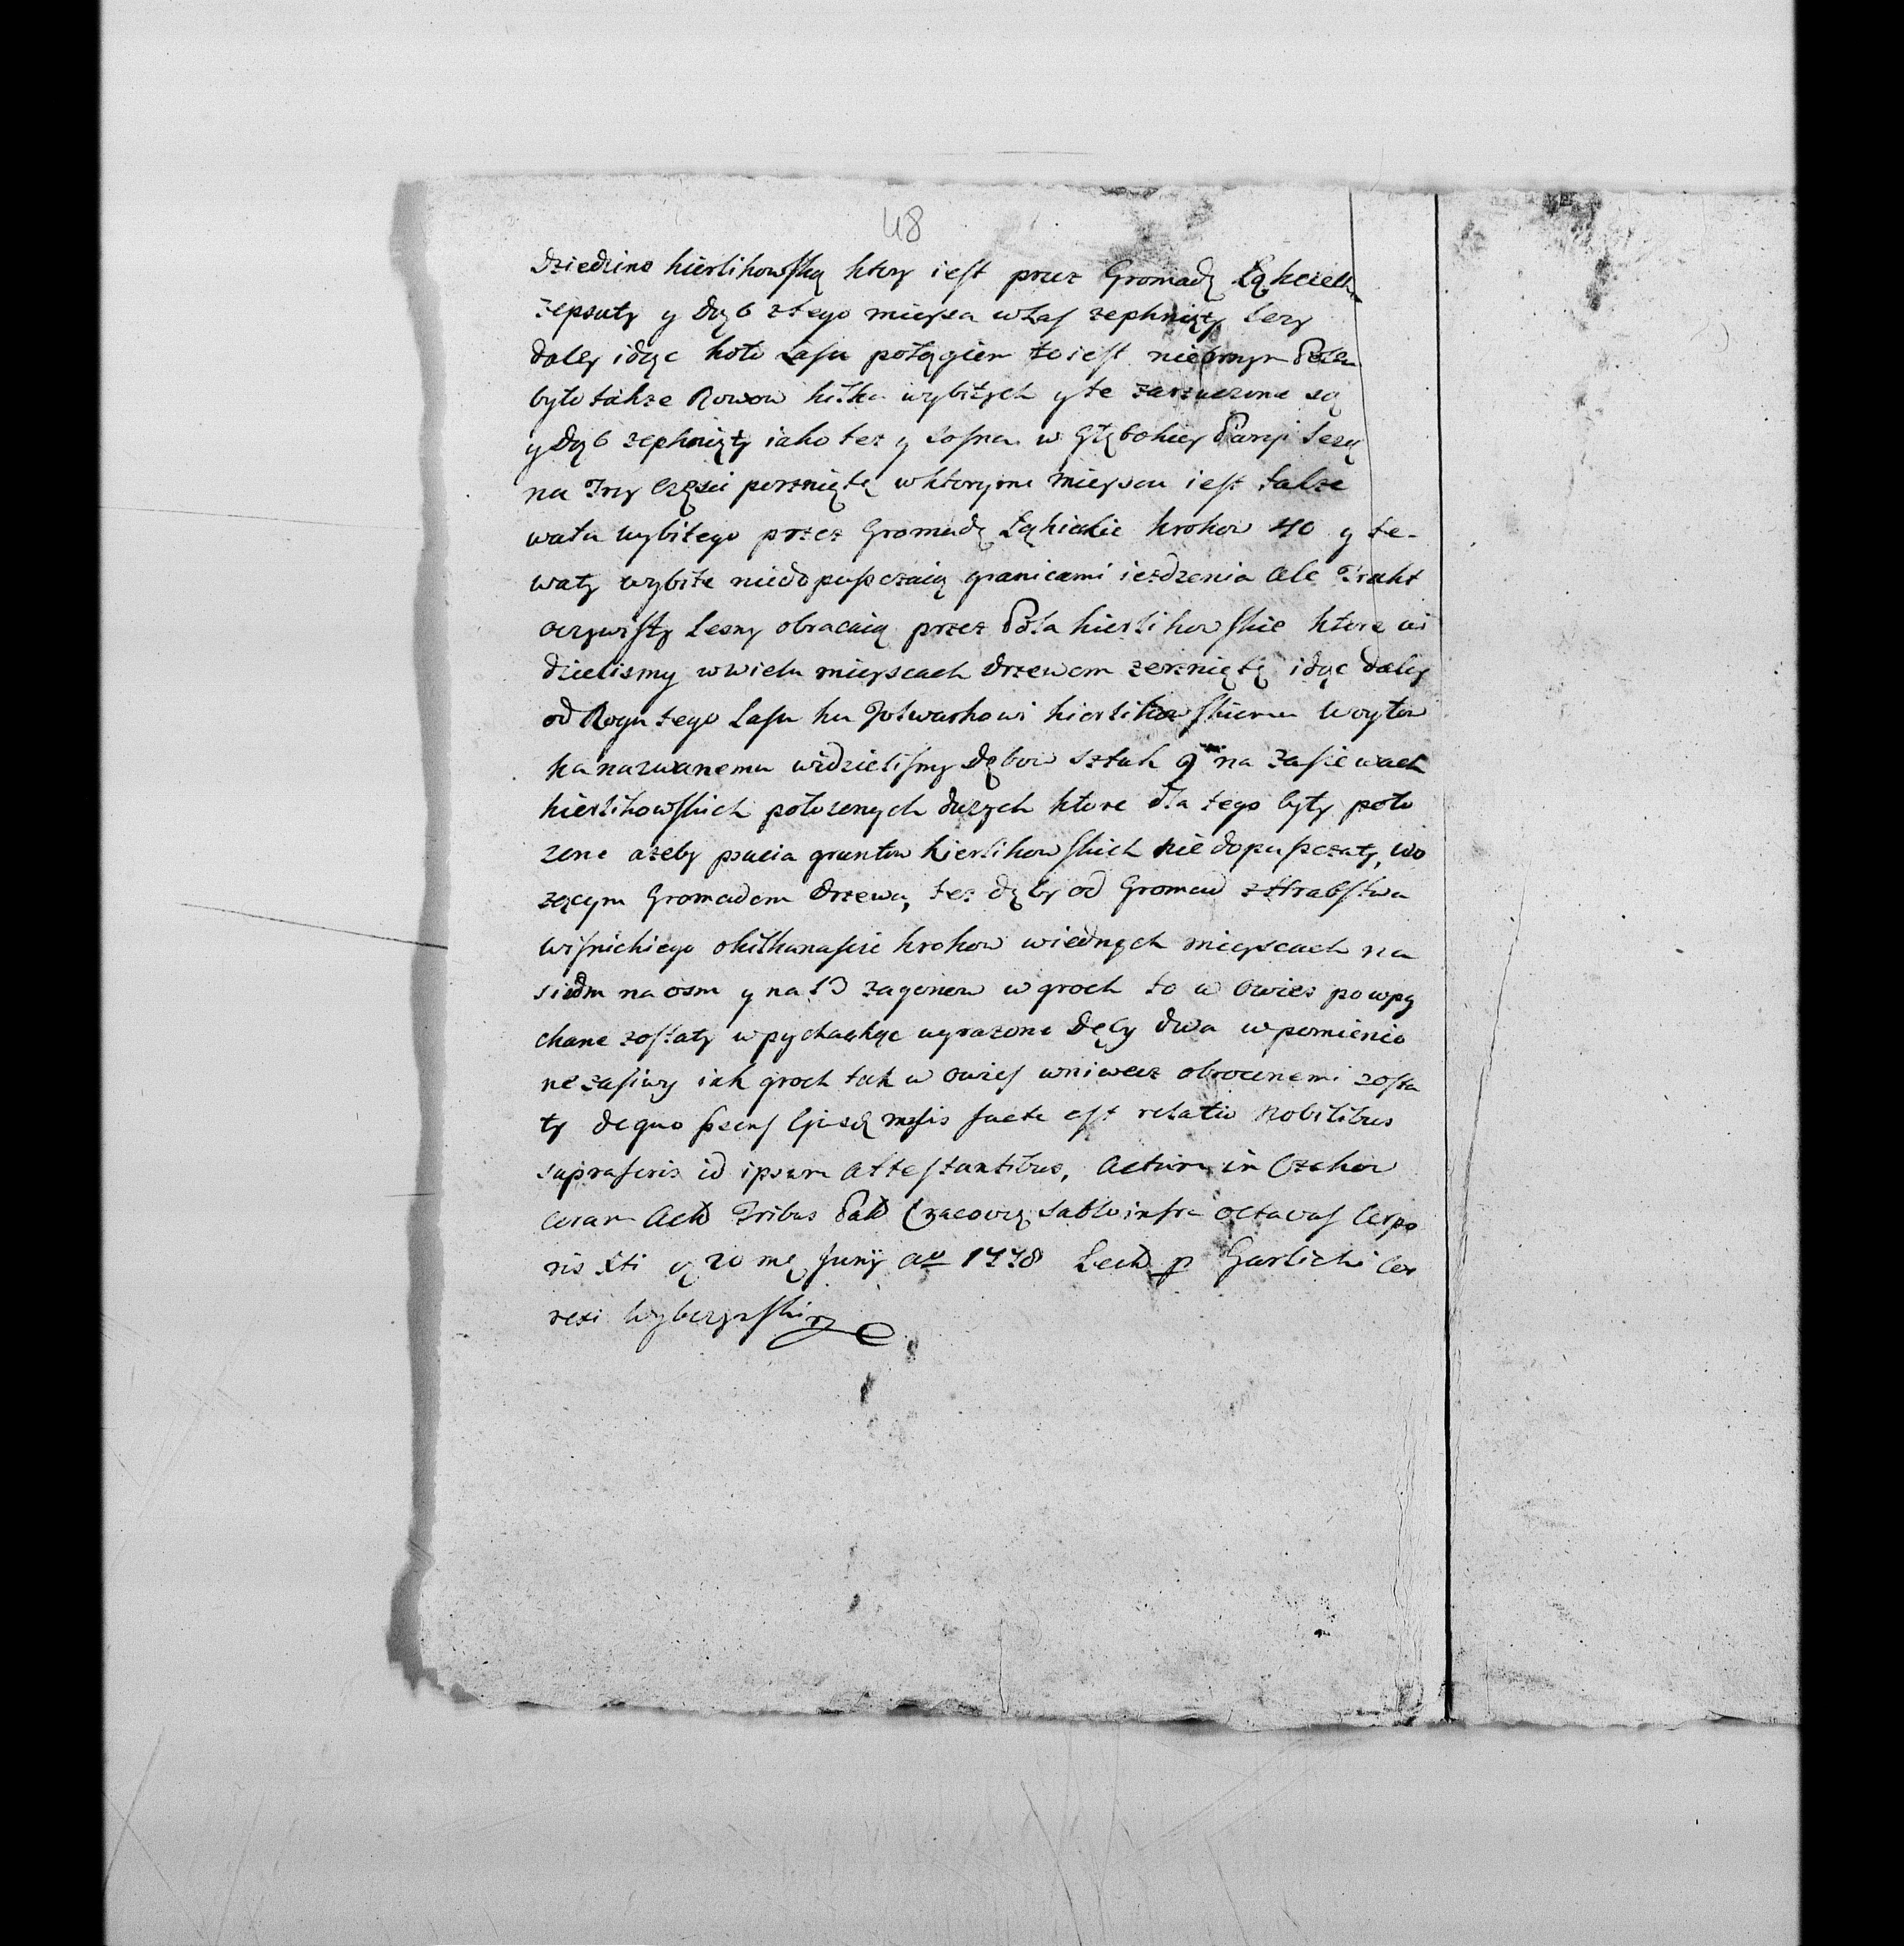 48
Dziedzine kierlikowską ktory iest przez Gromadę Łąkcielk
zepsuty y Dąb ztego mieysca wlas zepchnięty lezy
daley idąc koło Lasu połągiem to iest Polem
było także Rowow kilka wybitych y te zarzucone są
y Dąb zephnięty iako tez y sosna w Głębokiey Paryi lezą
na Trzy Części porznięte wktorym mieyscu iest także
wału wybitego przez Gromadę Łąkickie krokow 40 y te-
wały wybite niedopuszczaią granicami iezdzenia Ale Trakt
oczywisty Lesny obracaią przez Pola kierlikowskie ktore wi
dzielismy wwielu mieyscach Drzewem zerznięte idąc daley
od Rogu tego Lasu ku Folwarkowi kierlikowskiemu Woytow
ka nazwanemu widzielismy Dębow sztuk 9 na zasiewach
kierlikowskich połozonych duzych ktore dla tego były poło
zone azeby psucia gruntow kierlikowskich nie dopuszczały, wo
zącym Gromadom drzewa, tez dęby od Gromad zHrabstwa
Wisnickiego okilkanascie krokow wiednych mieyscach na
siedm na osm y na 13 zagonow w groch to w Owies powpy
chane zostały wpychaiąc wyrazone Dęby dwa wpomienio
ne zasiwy iak groch tak w owies wniwecz obroconemi zosta
ły dequo pzens ejusd mesis facta est relatio Nobilibus
suprascris id ipsum attestantibus, Actum in Czchow
Coram Actis Tribus Palt Cracovię Sabbo infra octavas Corpo
ris Xti 20 me Junÿ Ao 1778 Lect p Garlicki Cor
rexi Wybczynski